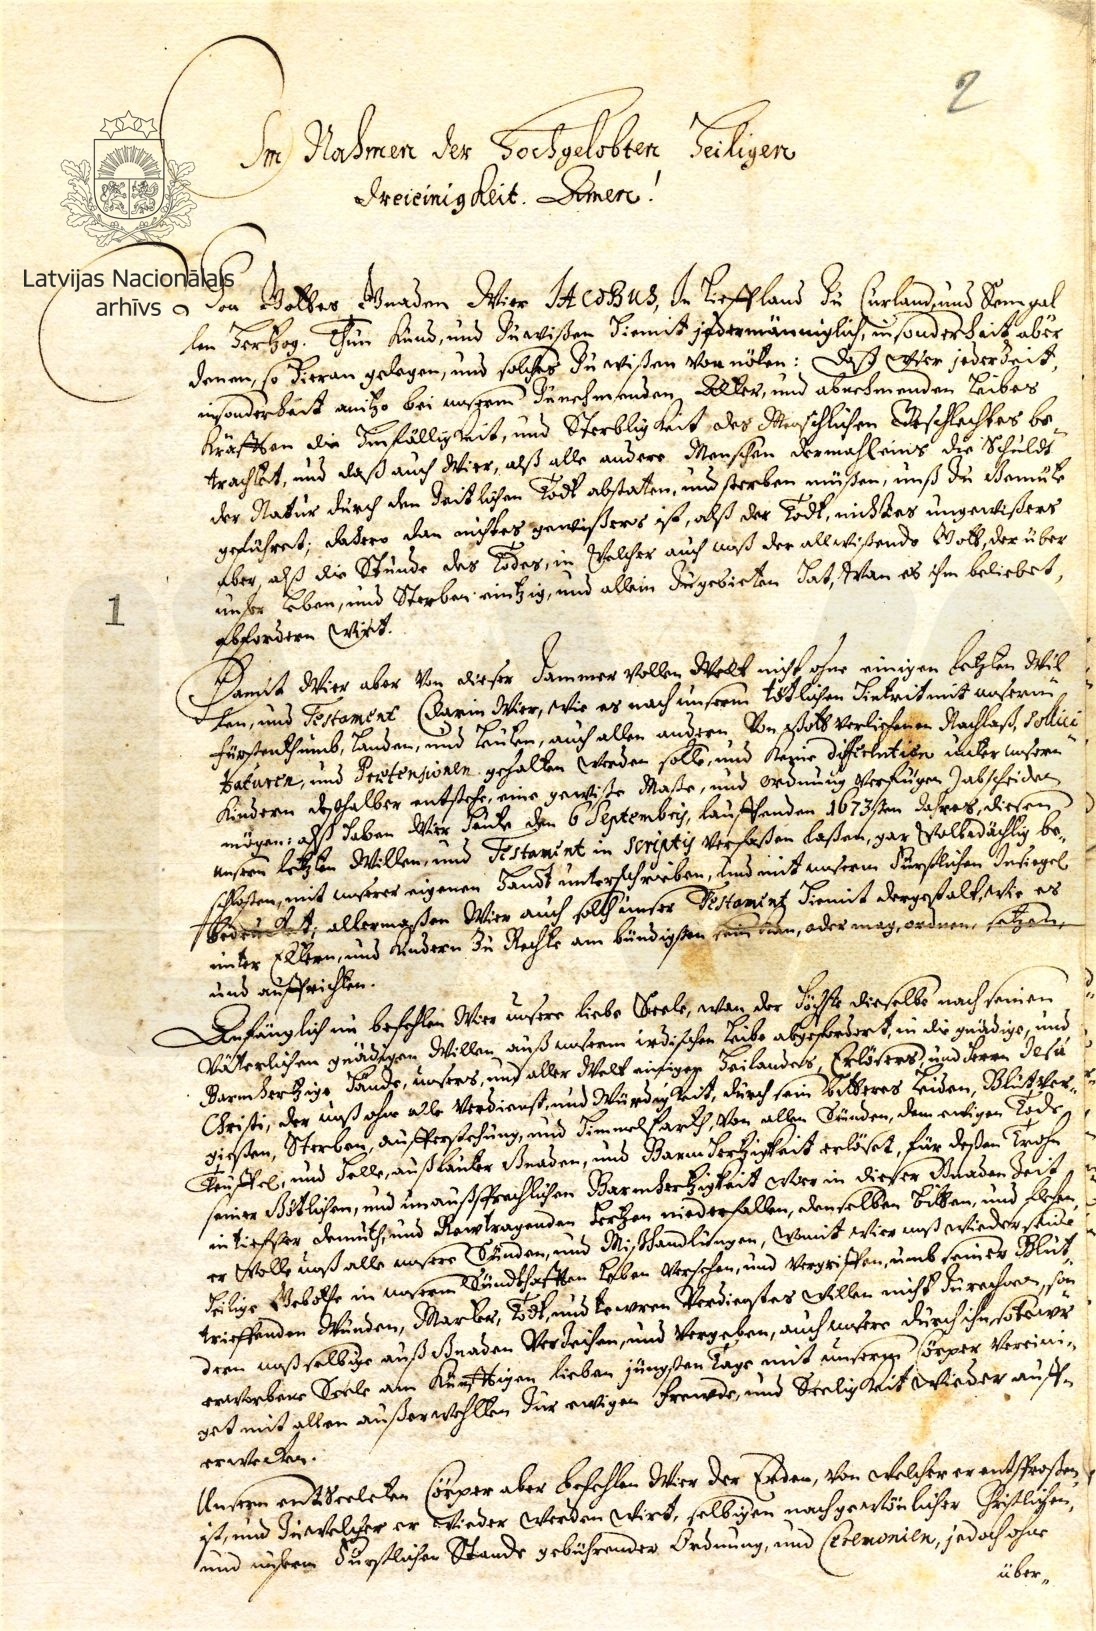 2
Im Nahmen der Hochgelobten Heiligen
Dreieinigkeit. Amen!
Latvijas Nacionālais
arhīvs
Von Gottes Gnaden Wier JACOBUS, In Lieffland Zu Curland, und Semgal
len Hertzog. Thun kund, und Zuwißen Hiemit jedermänniglich, insonderheit aber
denen, so Hieran gelegen, und solches Zu wißen von nöten: Daß Wier jederZeit,
insonderheit anitzo bei unserm Zunehmenden Alter, und abnehmenden Leibes
Kräfften die Hinfälligkeit, und Sterbligkeit des Menschlichen Geschlechtes be-
trachtet, und daß auch Wier, alß alle andere Menschen dermahleins die Schuldt
der Natur durch den Zeitlichen Todt abstaten, und sterben müßen, unß Zu Gemüte
geführet; dahero dan nichtes gewißers ist, alß der Todt, nichtes ungewißers
aber, alß die Stunde des Todes, in Welcher auch unß der allwißende Gott, der über
unser Leben, und Sterben eintzig, und allein Zugebieten hat, Wan es ihm beliebet,
abfordern wirt.
1
Damit Wier aber Von dieser Jammer vollen Welt nicht ohne einigen letzten Wil
len, und Testament (darin Wier, wie es nach unserm tötlichen Hintrit mit unserm
Fürstenthumb, Landen, und Leuten, auch allen andern Von Gott verliehenen Nachlaß,
und Prætensionen gehalten werden solle, und keine unter unsern
Kindern deshalber entstehe, eine gewiße Maße, und ordnung verfügen) abscheiden
mögen: alß haben Wier heute den 6 Septembris, lauffenden 1673sten Jahres, diesen
unsern letzten Willen, und Testament in scriptis verfaßen laßen, gar Wolbedächtig be-
schloßen, mit unserer eigenen Handt unterschrieben, und mit unserm Fürstlichen Insiegel
bedrucket; allermaßen Wier auch solch unser Testament Hiemit dergestalt, wie es
unter Eltern, und Kindern Zu Rechte am bündigsten sein kan, oder mag, ordnen, setzen,
und auffrichten.
Anfänglich nu befehlen Wier unsere liebe Seele, wan der Höchste dieselbe nach seinem
Väterlichen gnädigen Willen auß unserm irdischen Leibe abgefordert, in die gnädige, und
Barmhertzige Hände, unsers, und aller Welt einigen Heilandes, Erlösers, und Herrn Jesu
Christi, der unß ohne alle Verdienst, und Würdigkeit, durch sein bitteres Leiden, Blutver-
gießen, Sterben, aufferstehung, und Himmelfarth, von allen Sünden, dem ewigen Tode,
Teuffel, und Helle, auß lauter Gnaden, und Barmhertzigkeit erlöset, für deßen Trohn
seiner Götlichen, und unaußsprechlichen Barmhertzigkeit wier in dieser Gnaden Zeit
in tiefster demuth, und Rewtragenden Hertzen niederfallen, denselben bitten, und flehen,
er wolle unß alle unsere Sünden, und Mißhandlungen, womit wier unß wieder seine
Heilige Gebothe in unserm Sündhafften Leben versehen, und vergriffen, umb seiner Blut
trieffenden Wunden, Marter, Todt, und tewren Verdienstes willen nicht Zurechnen, son
dern unß selbige auß Gnaden verZeihen, und vergeben, auch unsere durch ihn so tewr
erworbene Seele am künfftigen lieben jüngsten Tage mit unserm Cörper vereini-
get mit allen außerwehlten Zur ewigen Frewde, und Seeligkeit wieder auff-
erwecken.
Unsern entSeeleten Cörper aber befehlen Wier der Erden, von welcher er entsproßen
ist, und Zu welcher er wieder werden wirt, selbigen nach gewönlicher Christlichen,
und unserm Fürstlichen Stande gebührender Ordnung, und Ceremonien, jedoch ohne
über-